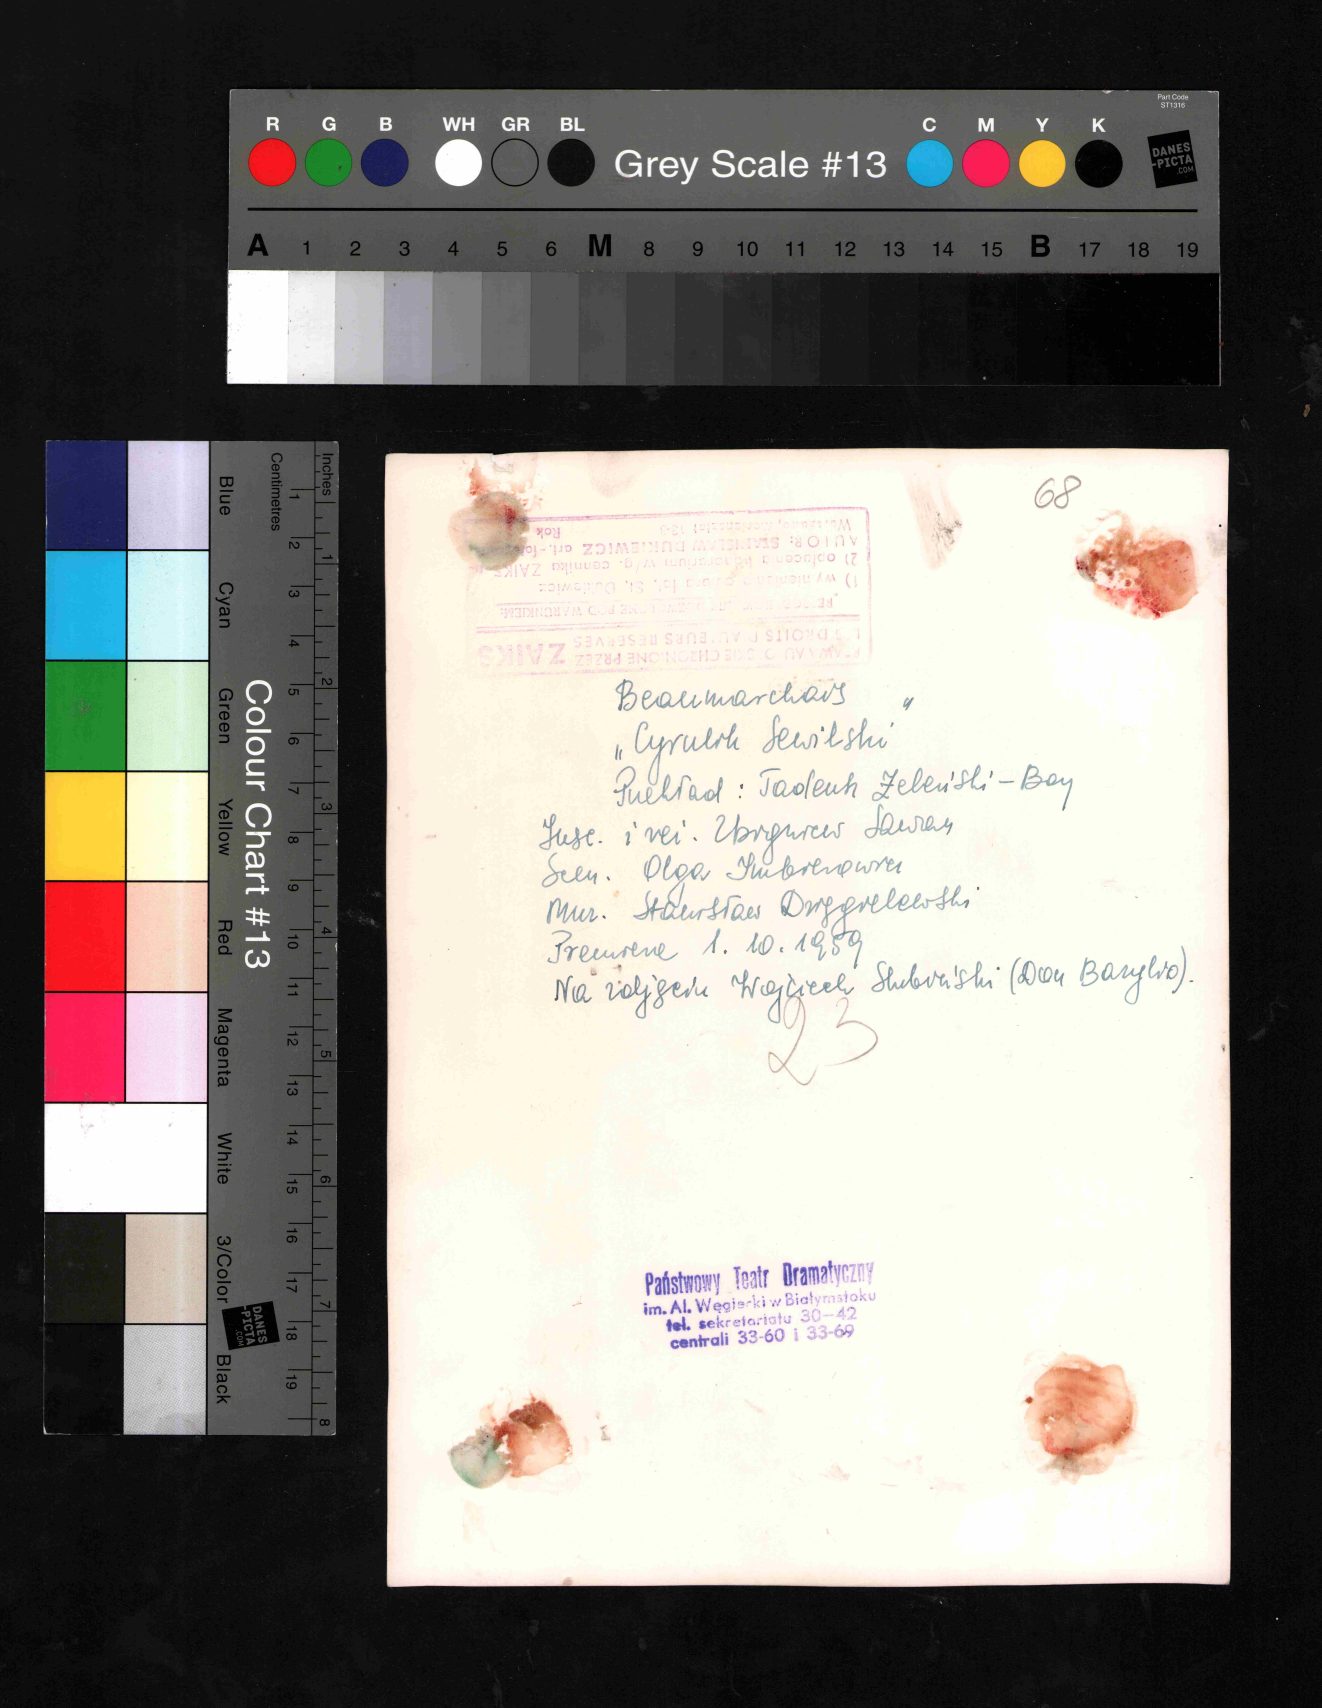 Part Code
ST1316
R G B WH GR BL Grey Scale #13 C M Y K
DANES
-PICTA
.COM
A 1 2 3 4 5 6 M 8 9 10 11 12 13 14 15 B 17 18 19
Colour Chart #13
Blue Cyan Green Yellow Red Magenta White 3/Color Black
Centimetres 1 2 3 4 5 6 7 8 9 10 11 12 13 14 15 16 17 18 19
Inches 1 2 3 4 5 6 7 8
DANES
-PICTA
.COM
68
PRZEZ ZAIKS
LES DROITS D'AUTEURS RESERVES
POD WARUNKIEM:
1) wymienienia fot. St. Dukiewicz
2) opłacenia honorarium w/g. cennika ZAIKS
AUTOR: STANISŁAW DUKIEWICZ art.-fot.
Warszawa, Rok
Beaumarchais
„Cyrulik Sewilski"
Przekład: Tadeusz Żeleński-Boy
Insc. i reż. Zbigniew Sawan
Scen. Olga
Muz. Stanisław
Premiera 1. 10. 1959
Na zdjęciu Wojciech (Don Bazylio).
23
Państwowy Teatr Dramatyczny
im. Al. Węgierki w Białymstoku
tel. sekretariatu 30-42
centrali 33-60 i 33-69